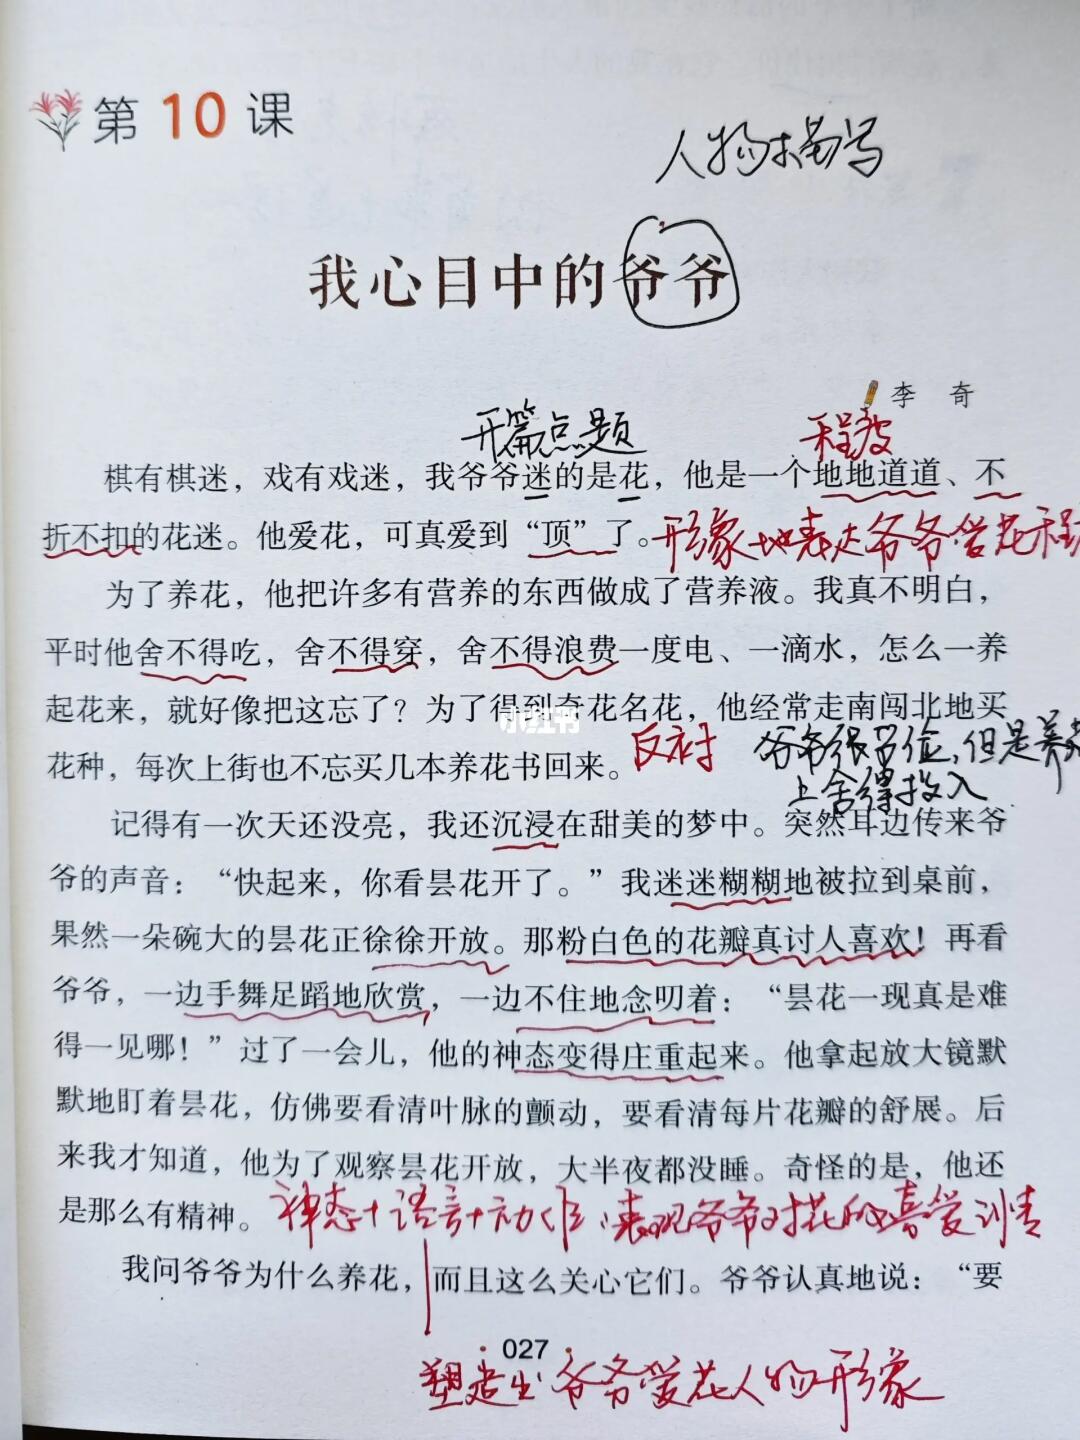 第10课
人物描写
我心目中的爷爷
李 奇
开篇点题
程度
棋有棋迷，戏有戏迷，我爷爷迷的是花，他是一个地地道道、不
折不扣的花迷。他爱花，可真爱到“顶”了。
形象地表达爷爷爱花程
为了养花，他把许多有营养的东西做成了营养液。我真不明白，
平时他舍不得吃，舍不得穿，舍不得浪费一度电、一滴水，怎么一养
起花来，就好像把这忘了？为了得到奇花名花，他经常走南闯北地买
小红书
花种，每次上街也不忘买几本养花书回来。
反衬
爷爷很节俭，但是养花
上舍得投入
记得有一次天还没亮，我还沉浸在甜美的梦中。突然耳边传来爷
爷的声音：“快起来，你看昙花开了。”我迷迷糊糊地被拉到桌前，
果然一朵碗大的昙花正徐徐开放。那粉白色的花瓣真讨人喜欢！再看
爷爷，一边手舞足蹈地欣赏，一边不住地念叨着：“昙花一现真是难
得一见哪！”过了一会儿，他的神态变得庄重起来。他拿起放大镜默
默地盯着昙花，仿佛要看清叶脉的颤动，要看清每片花瓣的舒展。后
来我才知道，他为了观察昙花开放，大半夜都没睡。奇怪的是，他还
是那么有精神。
神态+语言+动作 表现爷爷对花的喜爱之情
我问爷爷为什么养花，而且这么关心它们。爷爷认真地说：“要
027
塑造出爷爷爱花人物形象